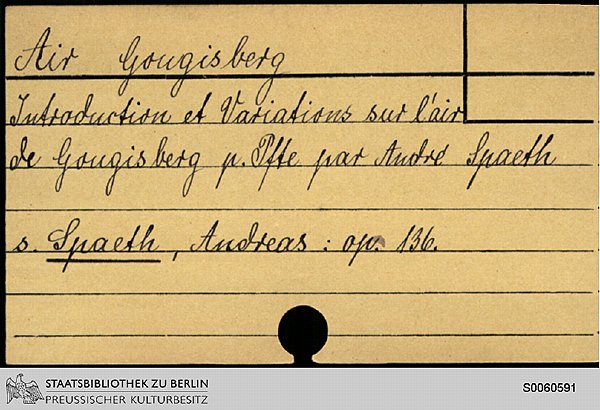 Air Gougisberg
Introduction et Variations sur l'air
de Gougisberg p. Pfte par André Spaeth
s. Spaeth, Andreas : op. 136.
STAATSBIBLIOTHEK ZU BERLIN
PREUSSISCHER KULTURBESITZ
S0060591